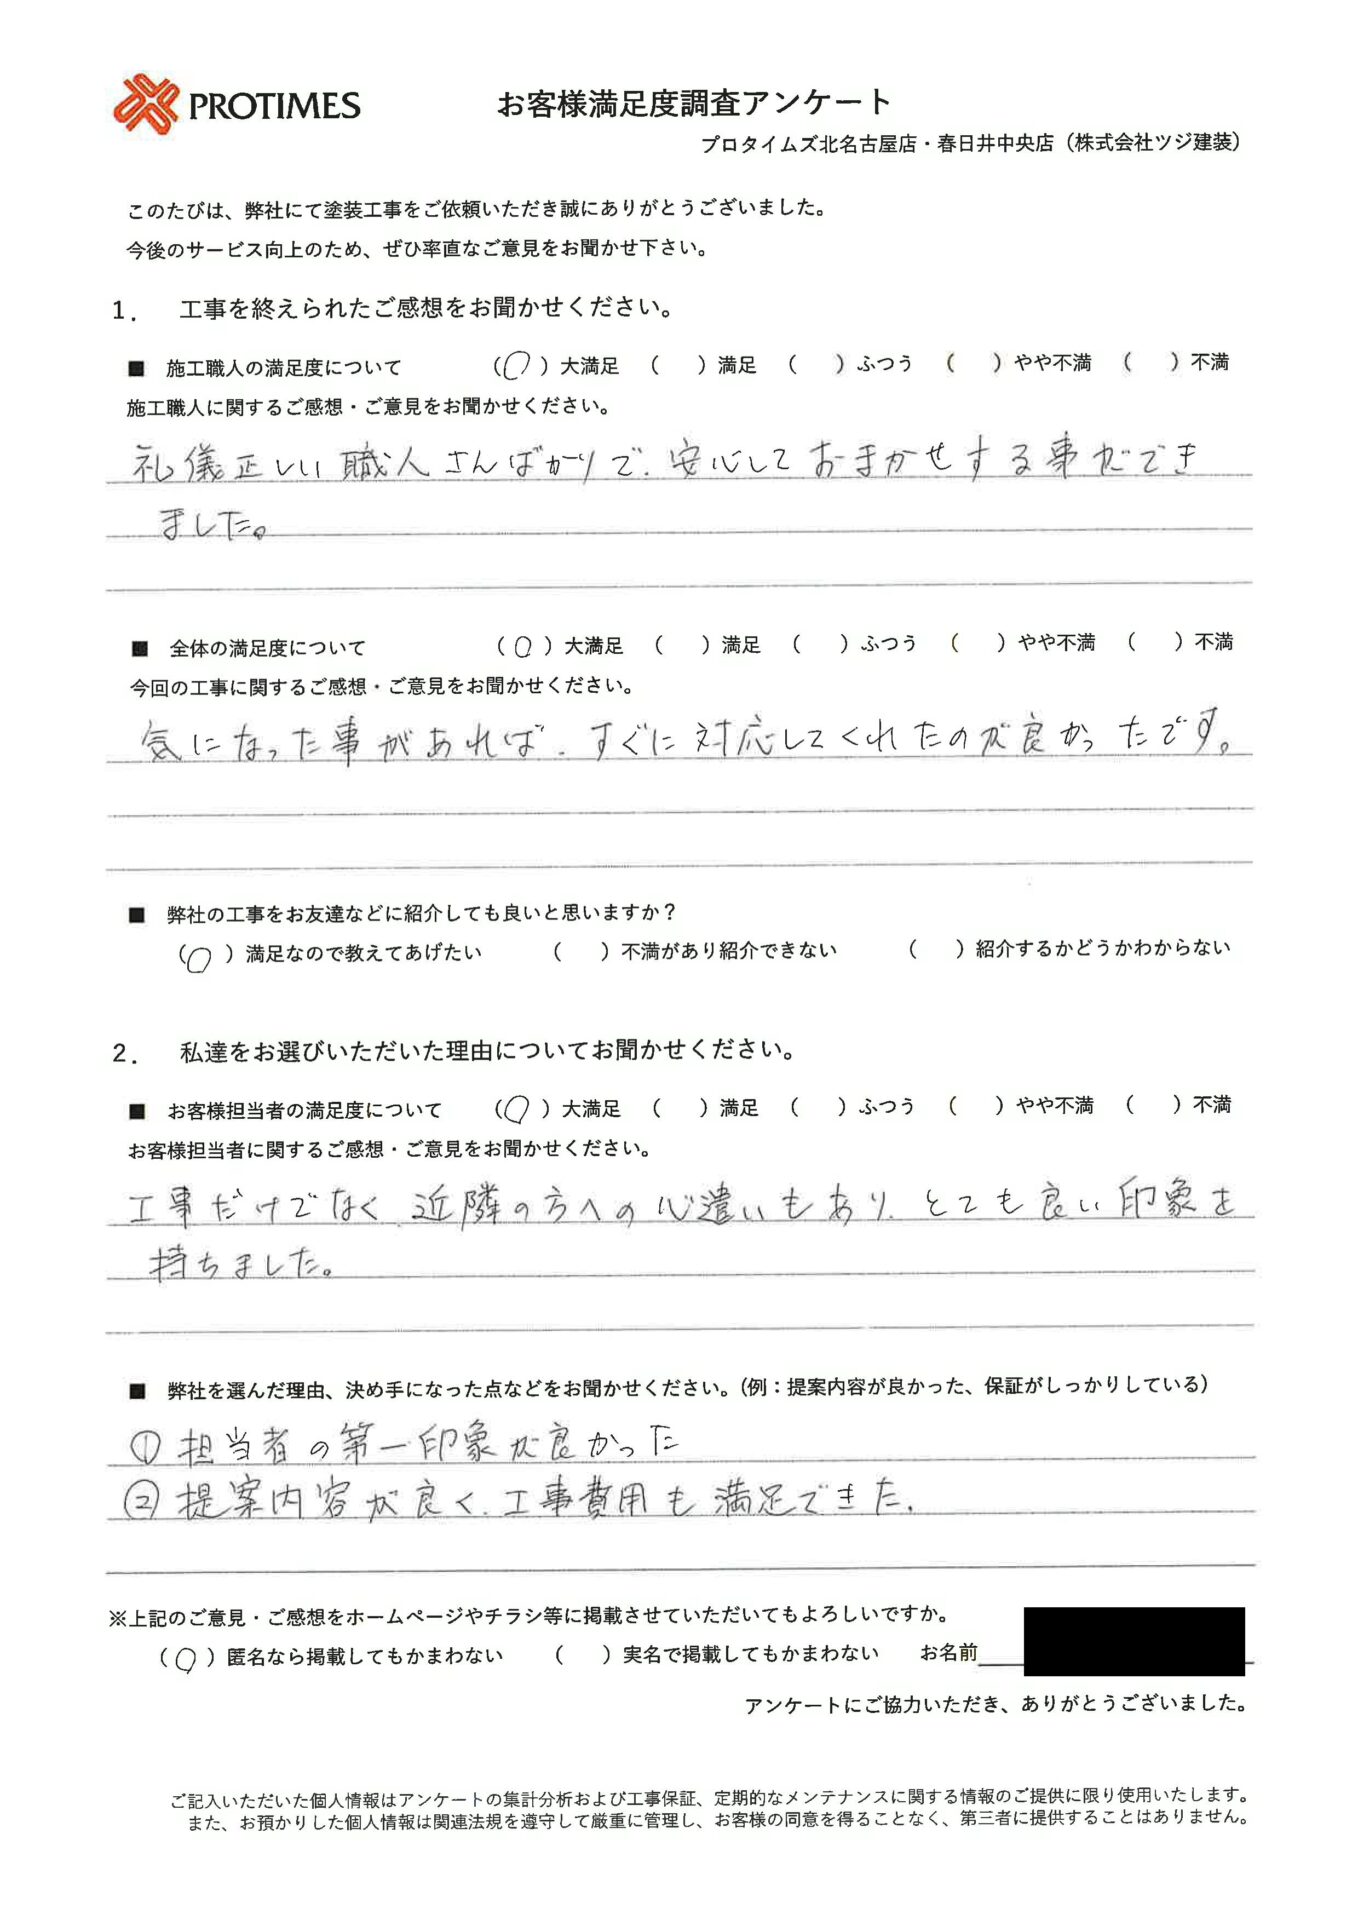 PROTIMES
お客様満足度調査アンケート
プロタイムズ北名古屋店・春日井中央店（株式会社ツジ建装）
このたびは、弊社にて塗装工事をご依頼いただき誠にありがとうございました。
今後のサービス向上のため、ぜひ率直なご意見をお聞かせ下さい。
1． 工事を終えられたご感想をお聞かせください。
■ 施工職人の満足度について （○）大満足 （ ）満足 （ ）ふつう （ ）やや不満 （ ）不満
施工職人に関するご感想・ご意見をお聞かせください。
礼儀正しい職人さんばかりで、安心しておまかせする事ができ
ました。
■ 全体の満足度について （○）大満足 （ ）満足 （ ）ふつう （ ）やや不満 （ ）不満
今回の工事に関するご感想・ご意見をお聞かせください。
気になった事があれば、すぐに対応してくれたのが良かったです。
■ 弊社の工事をお友達などに紹介しても良いと思いますか？
（○）満足なので教えてあげたい （ ）不満があり紹介できない （ ）紹介するかどうかわからない
2． 私達をお選びいただいた理由についてお聞かせください。
■ お客様担当者の満足度について （○）大満足 （ ）満足 （ ）ふつう （ ）やや不満 （ ）不満
お客様担当者に関するご感想・ご意見をお聞かせください。
工事だけでなく、近隣の方への心遣いもあり、とても良い印象を
持ちました。
■ 弊社を選んだ理由、決め手になった点などをお聞かせください。（例：提案内容が良かった、保証がしっかりしている）
①担当者の第一印象が良かった
②提案内容が良く、工事費用も満足できた。
※上記のご意見・ご感想をホームページやチラシ等に掲載させていただいてもよろしいですか。
（○）匿名なら掲載してもかまわない （ ）実名で掲載してもかまわない お名前
アンケートにご協力いただき、ありがとうございました。
ご記入いただいた個人情報はアンケートの集計分析および工事保証、定期的なメンテナンスに関する情報のご提供に限り使用いたします。
また、お預かりした個人情報は関連法規を遵守して厳重に管理し、お客様の同意を得ることなく、第三者に提供することはありません。